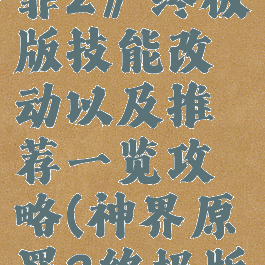 罪2》终极
版技能改
动以及推
荐一览攻
略(神界原
罪2终极版